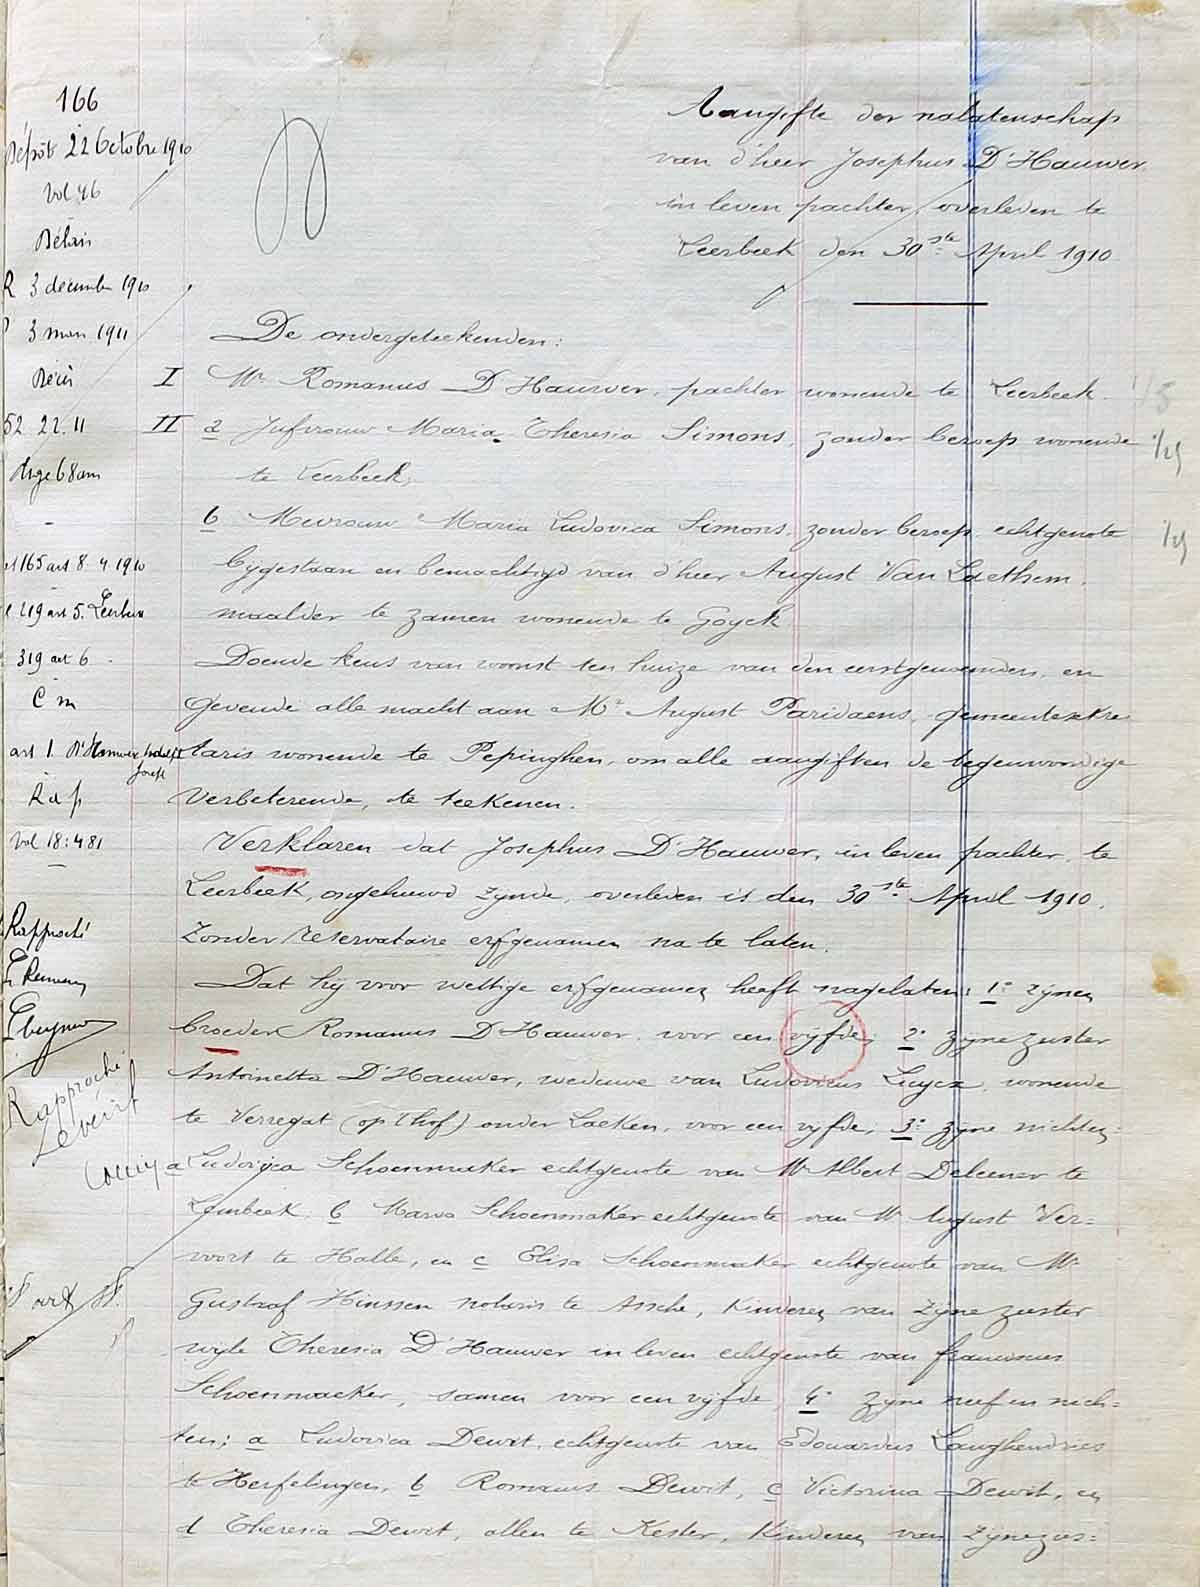 166
Dépôt 22 Octobre 1910
Vol 46
Délais
R 3 décembre 1910
3 mars 1911
Décès
52 22.11
Age 68 ans
165 art 8. 4. 1910
219 art 5. Leerbeek
319 art 6
C m
art 1. D'Hauwer
Joseph
R d p
Vol 18:481
Rapproché
Rapproché
Aangifte der nalatenschap
van d'heer Josephus D'Hauwer
in leven pachter, overleden te
Leerbeek den 30ste April 1910
De ondergeteekenden:
I Mr Romanus D'Hauwer, pachter wonende te Leerbeek. 1/5
II a Jufvrouw Maria Theresia Simons, zonder beroep wonende
te Leerbeek;
b Mevrouw Maria Ludovica Simons, zonder beroep, echtgenote
bijgestaan en bemachtigd van d'heer August Van Laethem,
maalder te zamen wonende te Goyck
Doende keus van woonst ten huize van den eerstgenoemden, en
gevende alle macht aan Mr August Paridaens, gemeentesekre
taris wonende te Pepinghen, om alle aangiften de tegenwoordige
verbeterende, te teekenen.
Verklaren dat Josephus D'Hauwer, in leven pachter, te
Leerbeek, ongehuwd zijnde, overleden is den 30ste April 1910,
zonder reservataire erfgenamen na te laten.
Dat hij voor wettige erfgenamen heeft nagelaten: 1° zijnen
broeder Romanus D'Hauwer voor een vijfde; 2° zijne zuster
Antoinetta D'Hauwer, weduwe van Ludovicus Luycx, wonende
te Verregat (op 't hof) onder Laeken, voor een vijfde; 3° zijne nichten:
a Ludovica Schoenmaeker echtgenote van Mr Albert Deleener te
Lembeek; b Maria Schoenmaker echtgenote van Mr August Ver=
voort te Halle, en c Elisa Schoenmaeker echtgenote van Mr
Gustaaf Hinssen notaris te Assche, kinderen van zijne zuster
wijle Theresia D'Hauwer in leven echtgenote van franciscus
Schoenmaeker, samen voor een vijfde, 4° zijne neef en nich=
ten; a Ludovica Dewit, echtgenote van Edouardus Langhendries
te Herfelingen, b Romanus Dewit, c Victorina Dewit, en
d Theresia Dewit, allen te Kester, kinderen van zijne zus=